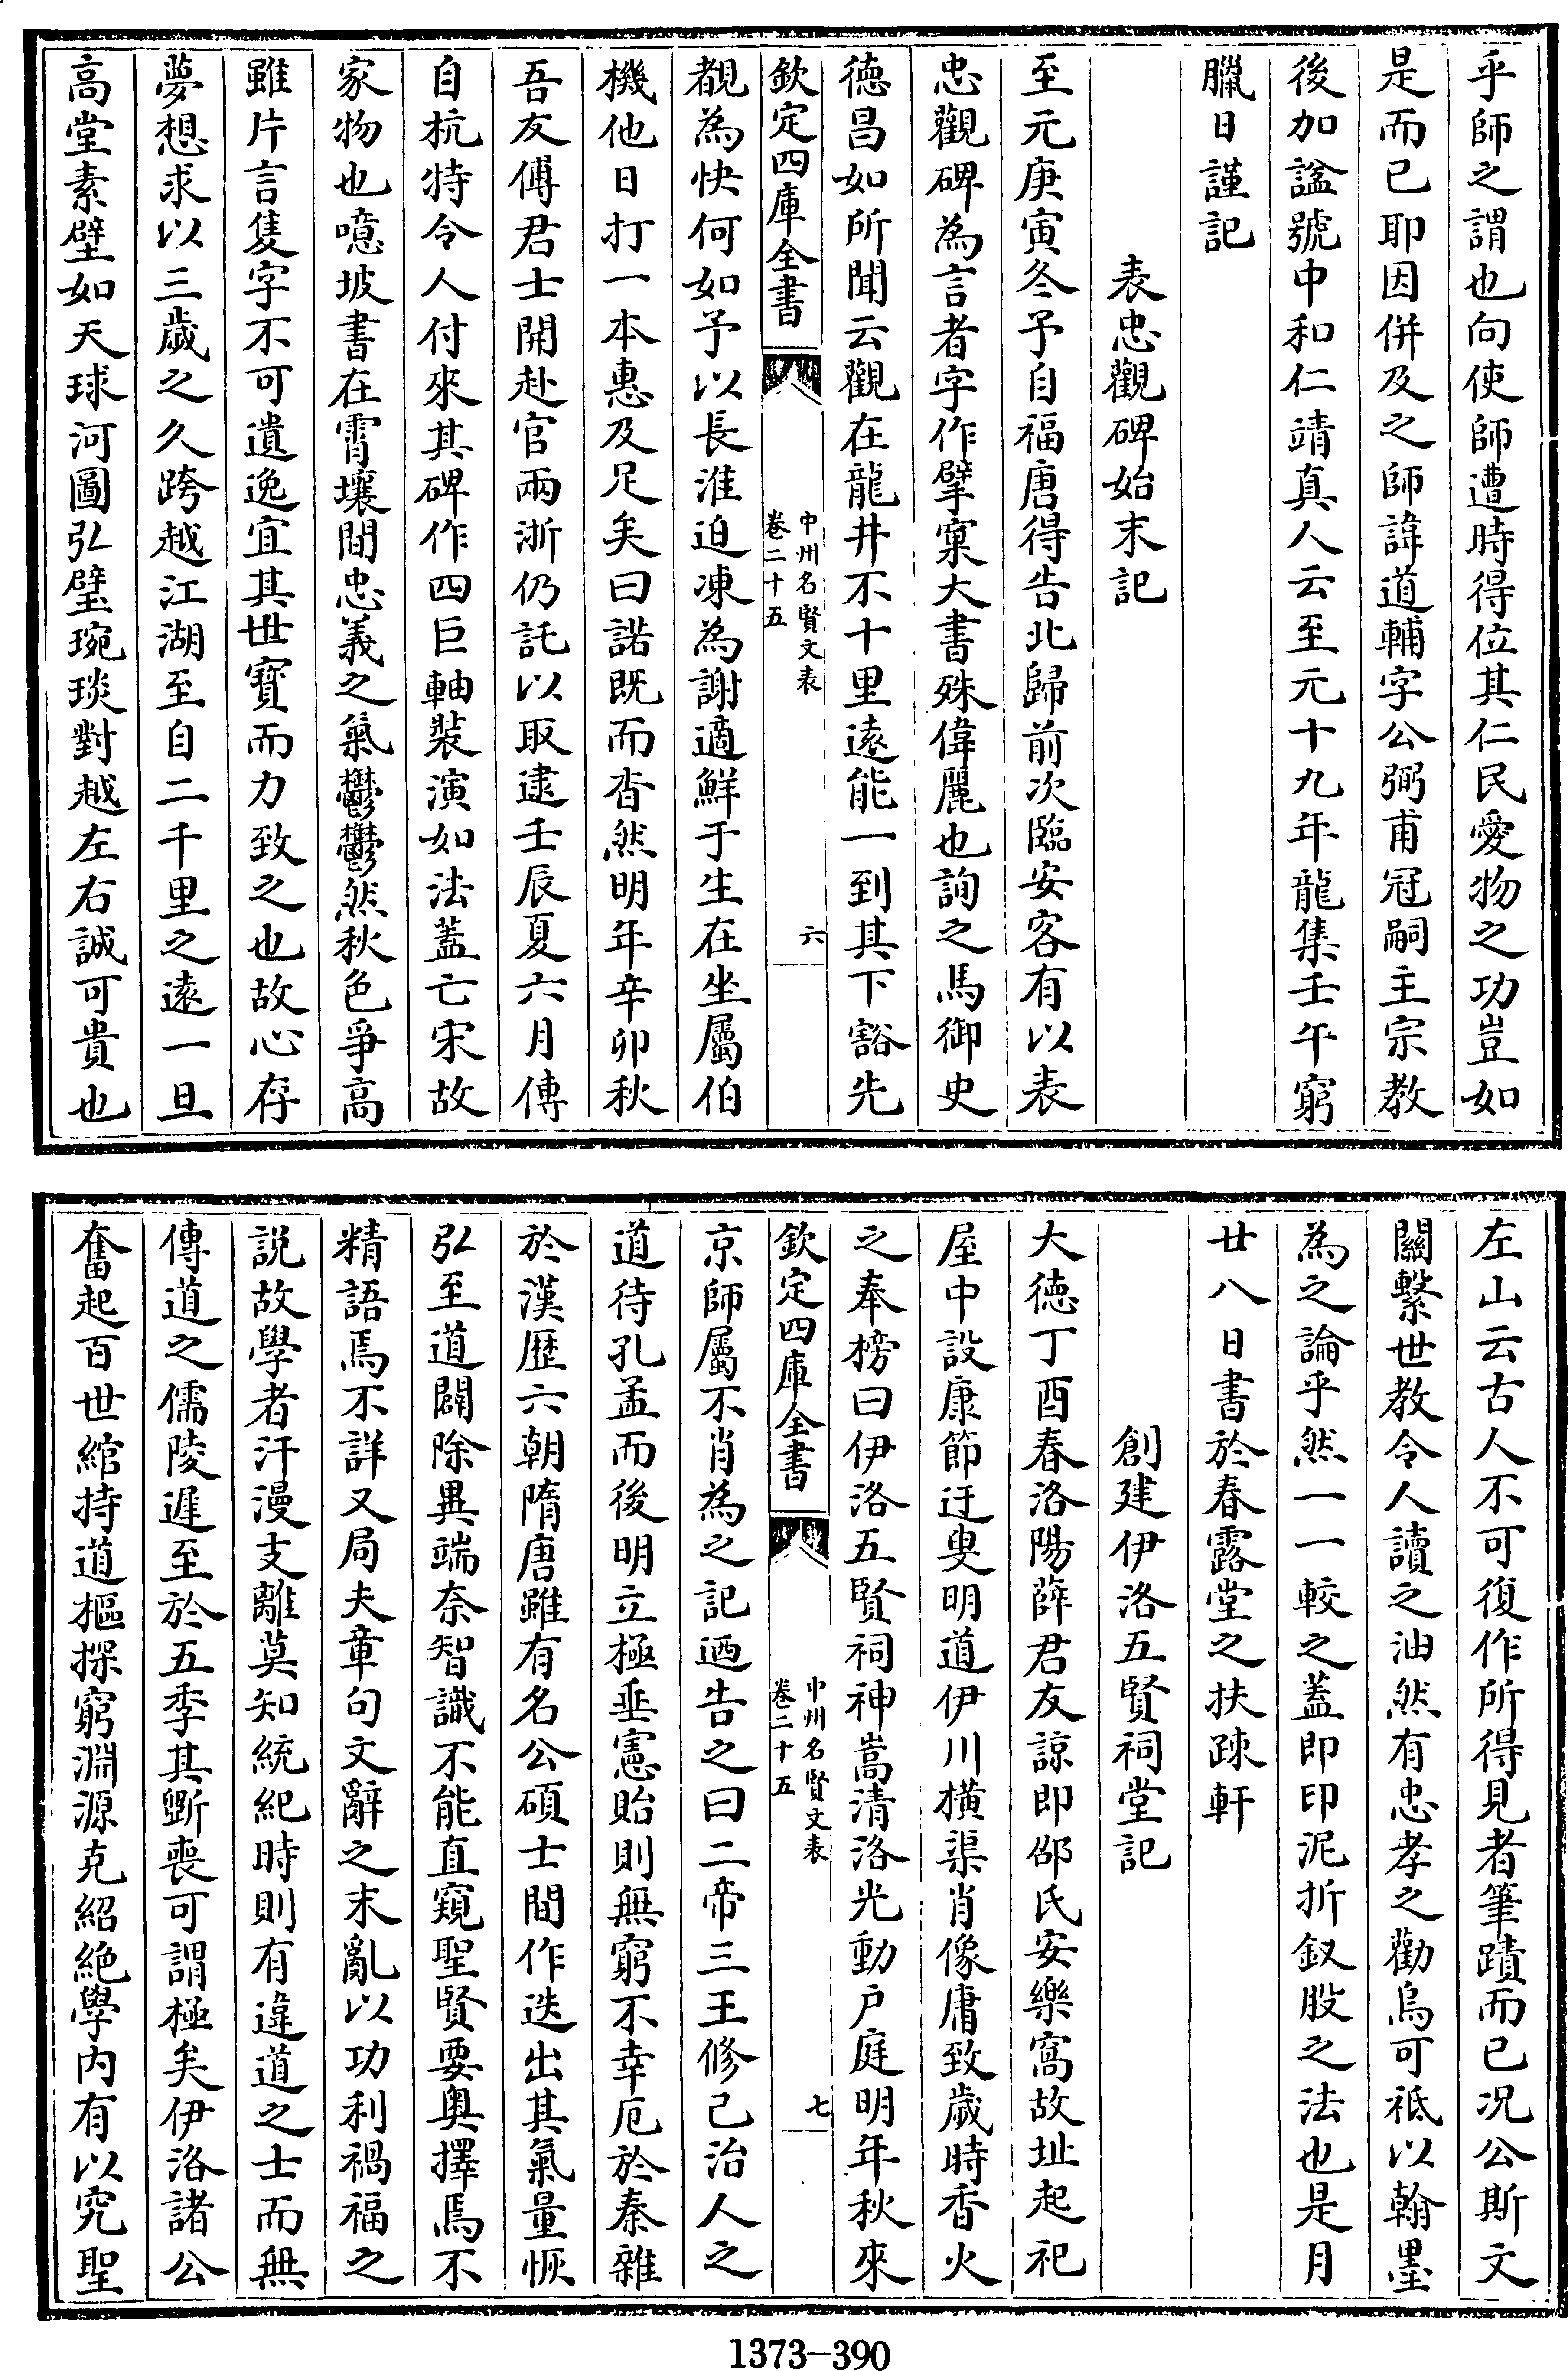 乎師之謂也向使師遭時得位其仁民愛物之功豈如
是而已耶因併及之師諱道輔字公弼甫冠嗣主宗教
後加諡號中和仁靖真人云至元十九年龍集壬午窮
臘日謹記
表忠觀碑始末記
至元庚寅冬予自福唐得告北歸前次臨安客有以表
忠觀碑為言者字作擘窠大書殊偉麗也詢之馬御史
德昌如所聞云觀在龍井不十里遠能一到其下豁先
欽定四庫全書
中州名賢文表
卷二十五
六
覩為快何如予以長淮迫凍為謝適鮮于生在坐屬伯
機他日打一本惠及足矣曰諾既而杳然明年辛卯秋
吾友傅君士開赴官兩浙仍託以取逮壬辰夏六月傅
自杭特令人付來其碑作四巨軸裝演如法蓋亡宋故
家物也噫坡書在霄壤間忠義之氣鬱鬱然秋色爭高
雖片言隻字不可遺逸宜其世寶而力致之也故心存
夢想求以三歲之久跨越江湖至自二千里之遠一旦
高堂素壁如天球河圖弘璧琬琰對越左右誠可貴也
左山云古人不可復作所得見者筆蹟而已况公斯文
關繫世教令人讀之油然有忠孝之勸烏可祗以翰墨
為之論乎然一一較之蓋即印泥折釵股之法也是月
廿八日書於春露堂之扶疎軒
創建伊洛五賢祠堂記
大德丁酉春洛陽薛君友諒即邵氏安樂窩故址起祀
屋中設康節迂叟明道伊川橫渠肖像庸致歲時香火
之奉榜曰伊洛五賢祠神嵩清洛光動户庭明年秋來
欽定四庫全書
中州名賢文表
卷二十五
七
京師屬不肖為之記迺告之曰二帝三王修己治人之
道待孔孟而後明立極垂憲貽則無窮不幸厄於秦雜
於漢歷六朝隋唐雖有名公碩士間作迭出其氣量恢
弘至道闢除異端奈智識不能直窺聖賢要奥擇焉不
精語焉不詳又局夫章句文辭之末亂以功利禍福之
説故學者汗漫支離莫知統紀時則有違道之士而無
傳道之儒陵遲至於五季其斲喪可謂極矣伊洛諸公
奮起百世綰持道樞探窮淵源克紹絕學内有以究聖
1373-390